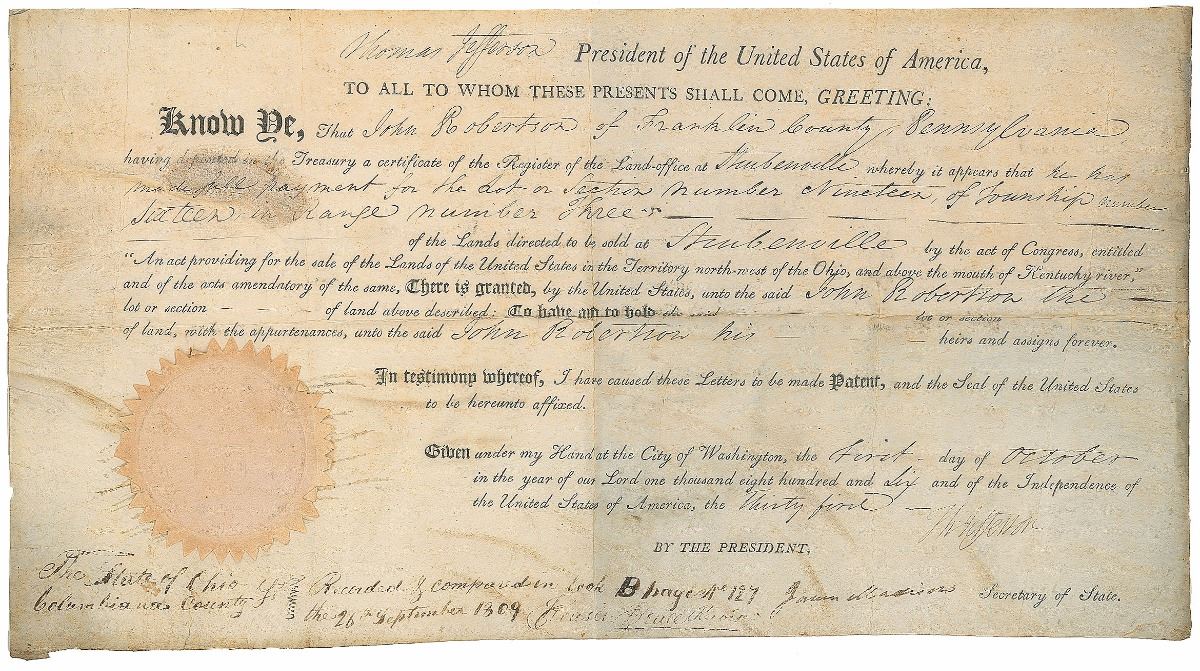 Thomas Jefferson President of the United States of America,
TO ALL TO WHOM THESE PRESENTS SHALL COME, GREETING:
Know Ye, That John Robertson of Franklin County, Pennsylvania
having deposited in the Treasury a certificate of the Register of the Land-office at Steubenville whereby it appears that he has
made full payment for the Lot or Section number Nineteen, of Township number
Sixteen, in Range number Three
of the Lands directed to be sold at Steubenville by the act of Congress, entitled
“An act providing for the sale of the Lands of the United States in the Territory north-west of the Ohio, and above the mouth of Kentucky river,”
and of the acts amendatory of the same, There is granted, by the United States, unto the said John Robertson the
lot or section of land above described: To have and to hold the said lot or section
of land, with the appurtenances, unto the said John Robertson his heirs and assigns forever.
In testimony whereof, I have caused these Letters to be made Patent, and the Seal of the United States
to be hereunto affixed.
Given under my Hand at the City of Washington, the first day of October
in the year of our Lord one thousand eight hundred and Six and of the Independence of
the United States of America, the Thirty first
Th Jefferson
BY THE PRESIDENT,
James Madison Secretary of State.
The State of Ohio
Columbiana County
Recorded & compared in book B page
the 26 September 1809